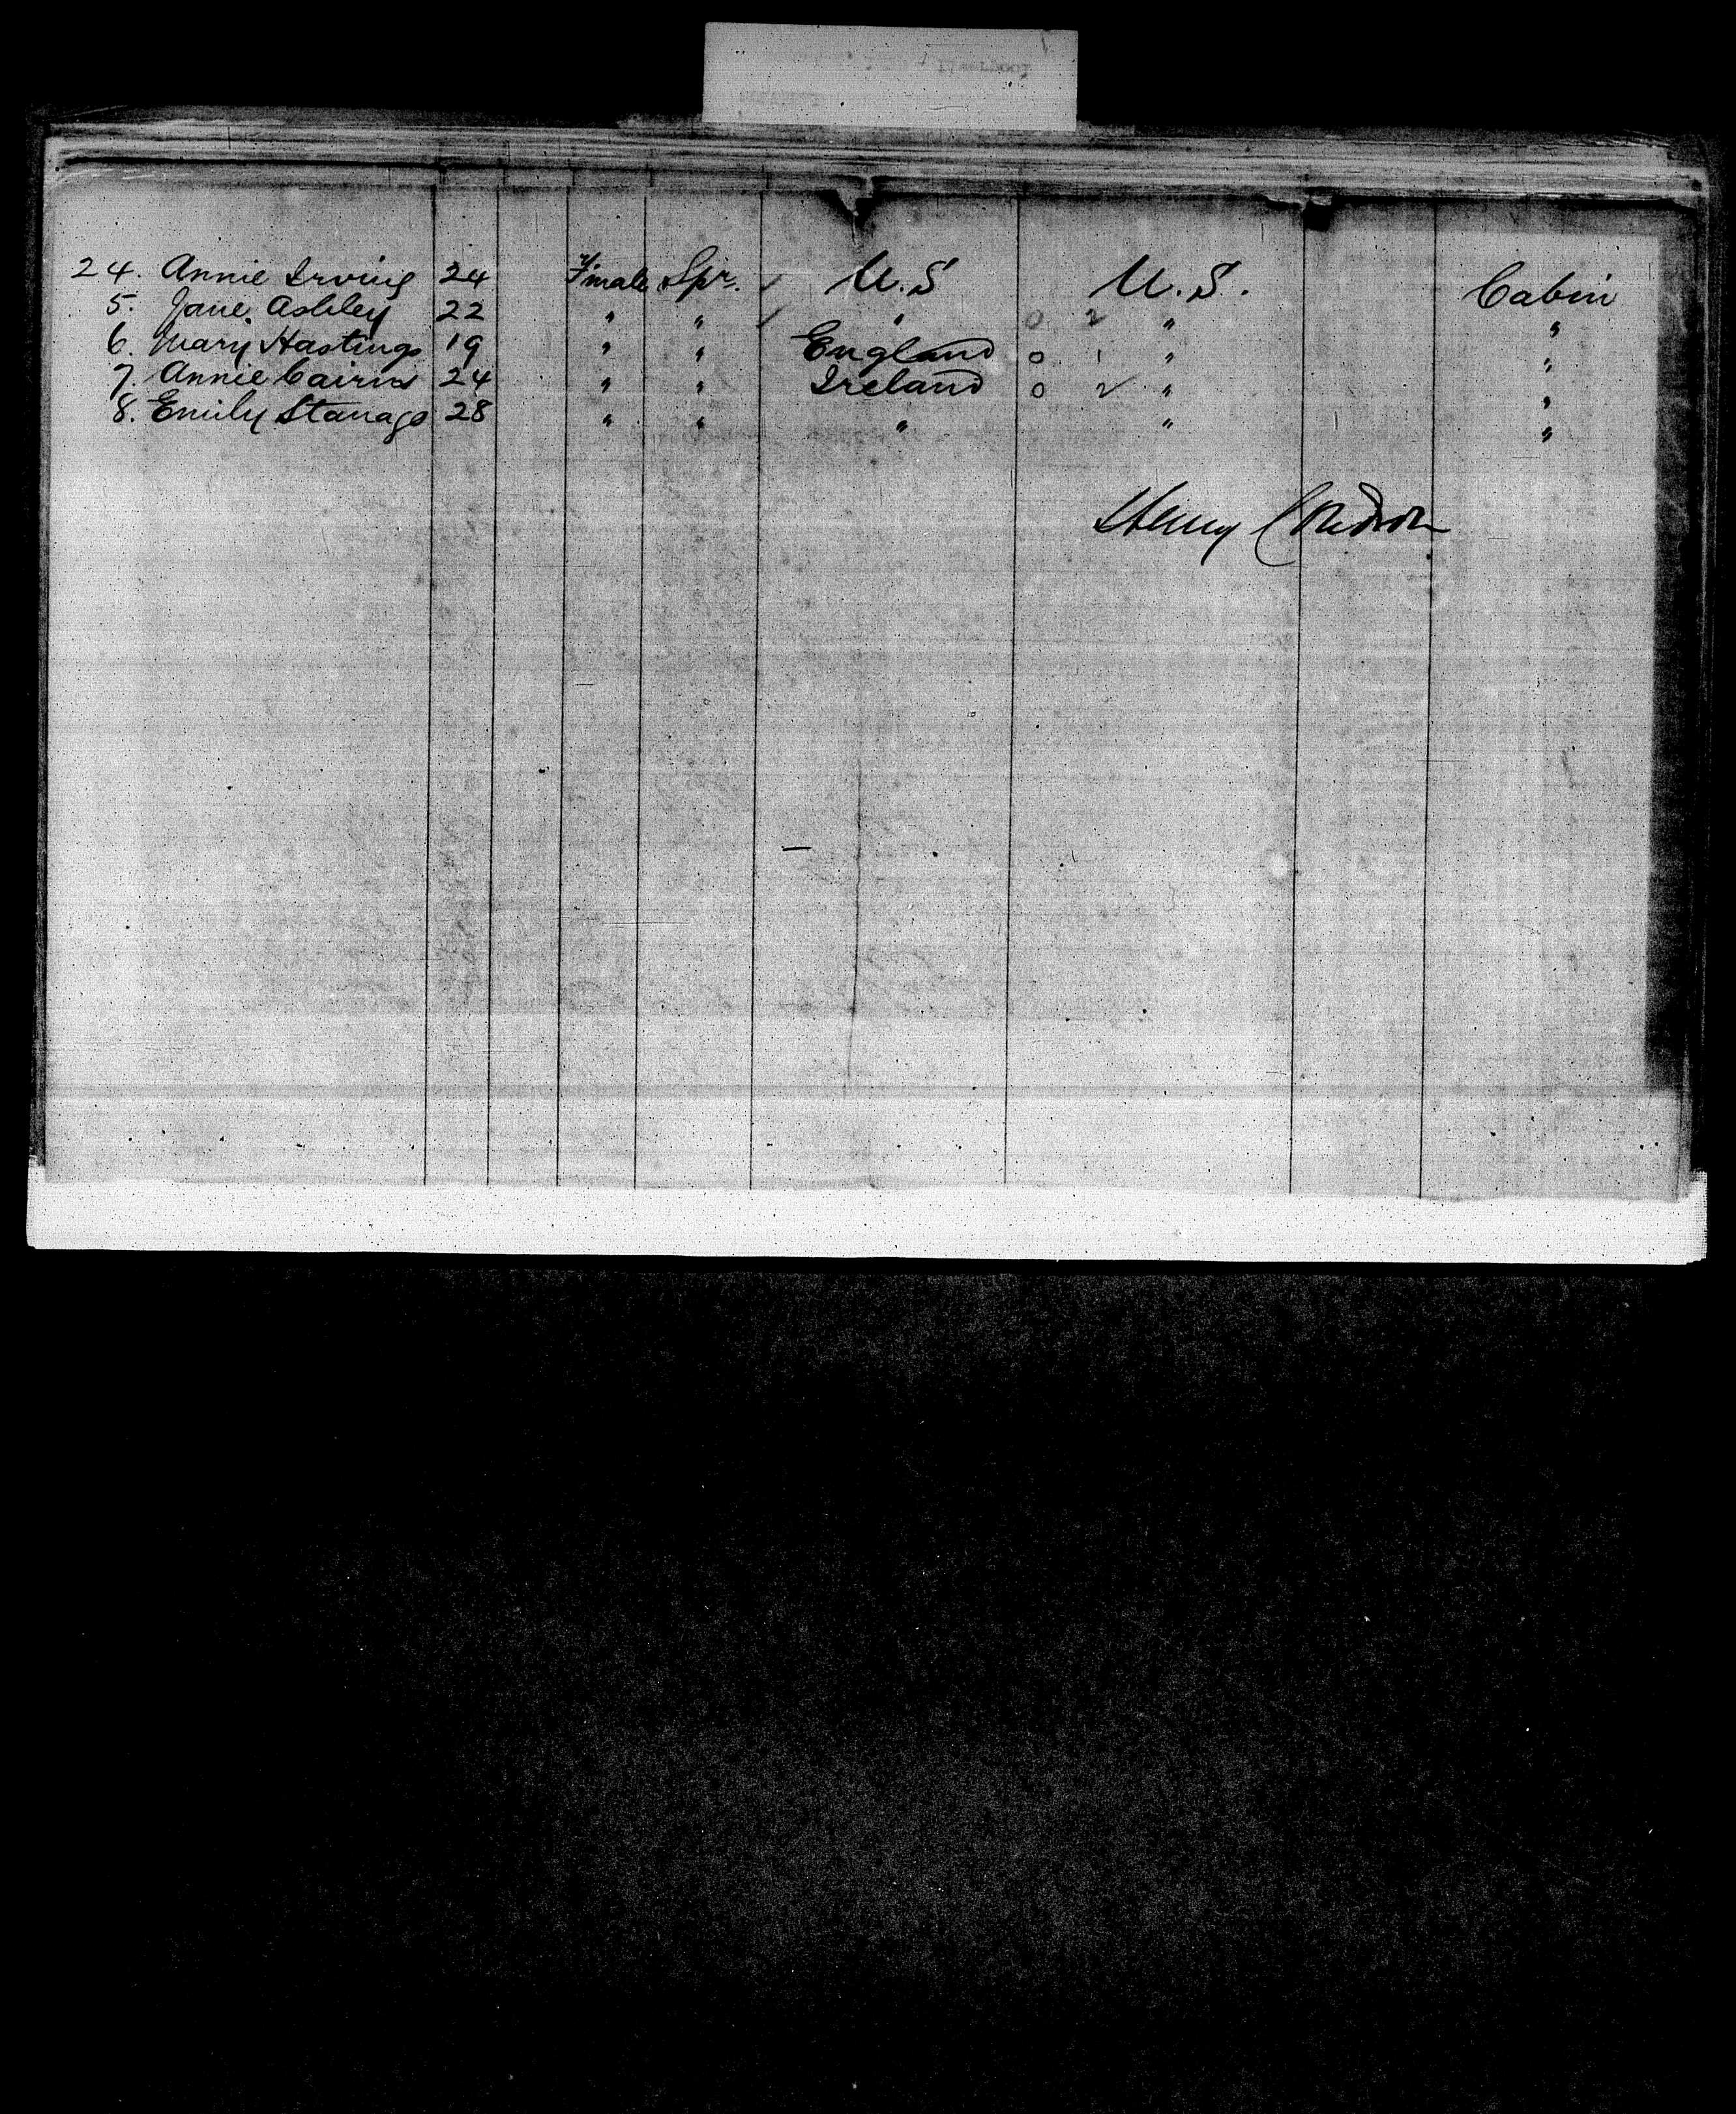 Liverpool
24. Annie Irving 24 Female Spr. U.S U.S. Cabin
5. Jane Ashley 22 " " " 0 2 " "
6. Mary Hastings 19 " " England 0 1 " "
7. Annie Cairns 24 " " Ireland 0 2 " "
8. Emily Stanage 28 " " " " "
Henry